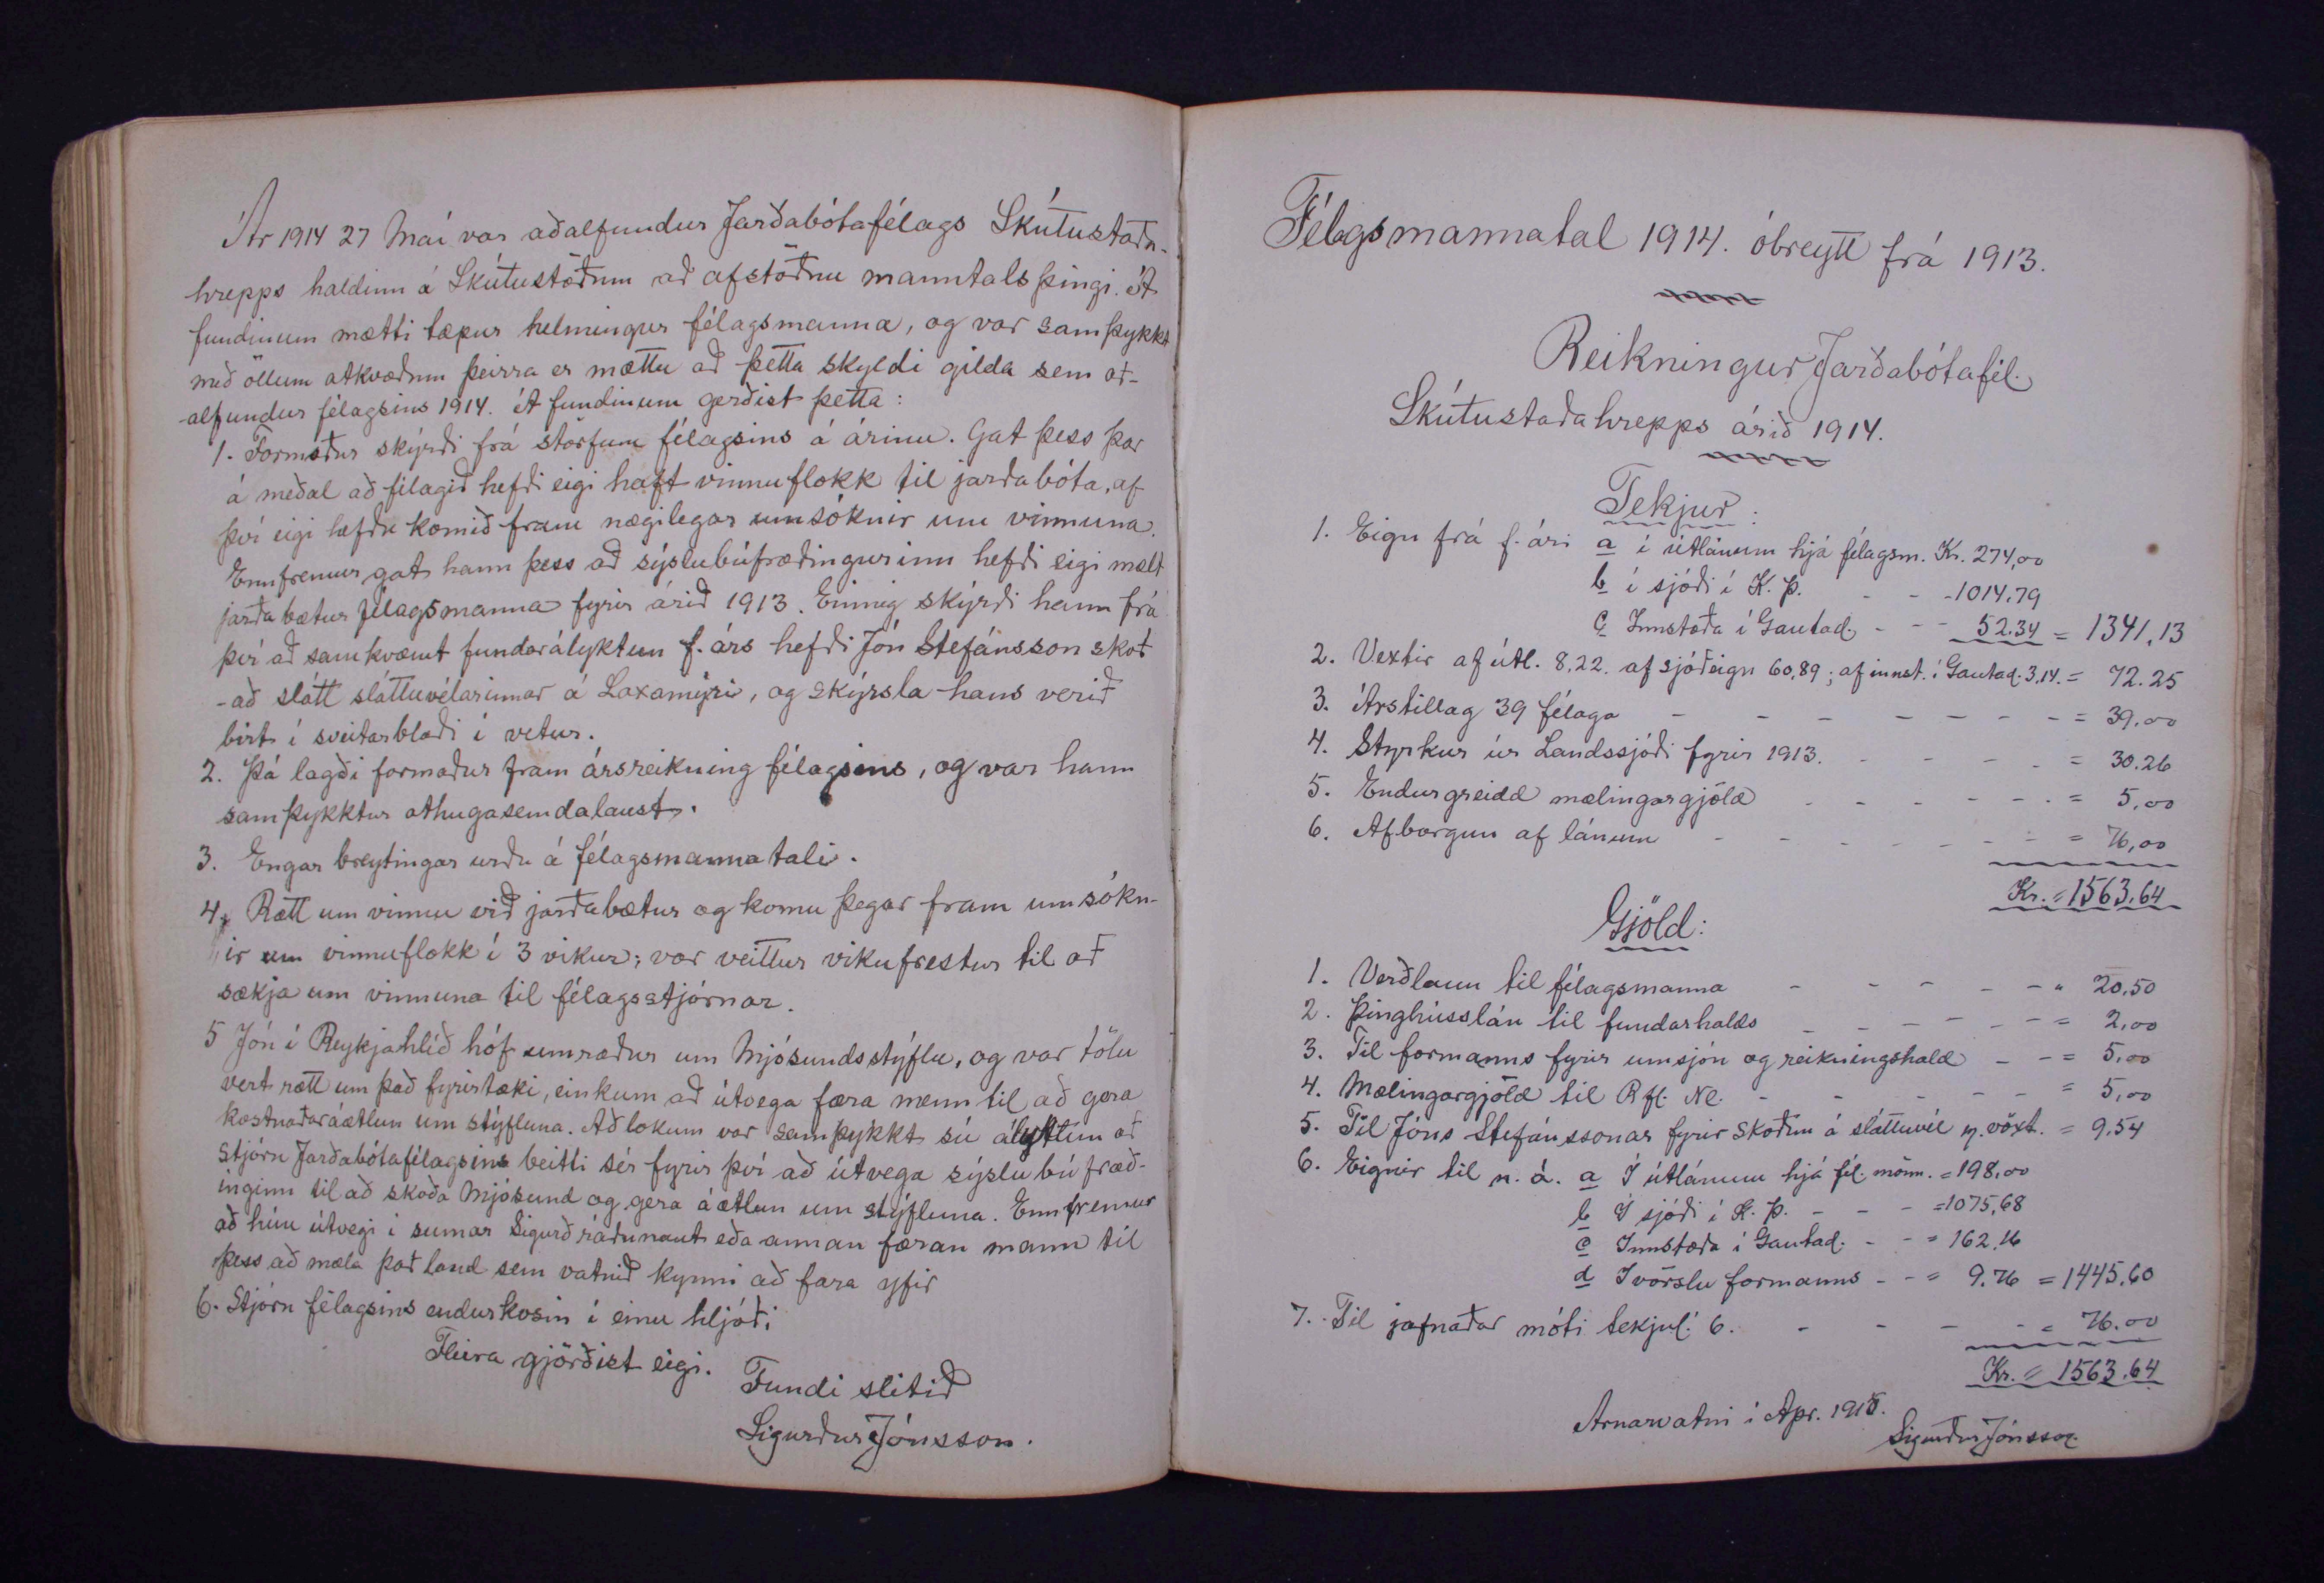 Ár 1914 27 Maí var aðalfundur Jarðabótafélags Skútustaða-
hrepps haldinn á Skútustöðum að afstöðnu manntalsþingi. Á
fundinum mætti tæpur helmingur félagsmanna, og var samþykkt
með öllum atkvæðum þeirra er mættu að þetta skyldi gilda sem að-
-alfundur félagsins 1914. Á fundinum gerðist þetta:
1. Formaður skýrði frá störfum félagsins á árinu. Gat þess þar
á meðal að félagið hefði eigi haft vinnuflokk til jarðabóta, af
því eigi hefðu komið fram nægilegar umsóknir um vinnuna.
Ennfremur gat hann þess að sýslubúfræðingurinn hefði eigi mælt
jarðabætur félagsmanna fyrir árið 1913. Einnig skýrði hann frá
því að samkvæmt fundarályktun f. árs hefði Jón Stefánsson skoð
-að slátt sláttuvélarinnar á Laxamýri, og skýrsla hans verið
birt í sveitarblaði í vetur.
2. Þá lagði formaður fram ársreikning félagsins, og var hann
samþykktur athugasemdalaust.
3. Engar breytingar urðu á félagsmannatali.
4. Rætt um vinnu við jarðabætur og komu þegar fram umsókn-
ir um vinnuflokk í 3 vikur; var veittur vikufrestur til að
sækja um vinnuna til félagsstjórnar.
5 Jón í Reykjahlíð hóf umræður um Mjósundsstýflu, og var tölu
vert rætt um það fyrirtæki, einkum að útvega færa menn til að gera
kostnaðaráætlun um stýfluna. Að lokum var samþykkt sú ályktun að
stjórn Jarðabótafélagsins beitti sér fyrir því að útvega sýslubúfræð-
inginn til að skoða Mjósund og gera áætlun um stýfluna. Ennfremur
að hún útvegi í sumar Sigurð ráðunaut eða annan færan mann til
þess að mæla það land sem vatnið kynni að fara yfir
6. Stjórn félagsins endurkosin í einu hljóði
Fleira gjörðist eigi.
Fundi slitið
Sigurður Jónsson.
Félagsmannatal 1914. óbreytt frá 1913.
Reikningur Jarðabótafél.
Skútustaðahrepps árið 1914.
Tekjur:
1. Eign frá f. ári a í útlánum hjá félagsm. Kr. 274,00
b í sjóði í K. Þ. - - - 1014,79
c Innstæða í Gautad. - - - 52.34 = 1341,13
2. Vextir af útl. 8,22. af sjóðeign 60,89; af innst. í Gautad. 3,14. = 72.25
3. Árstillag 39 félaga - - - - - - - = 39,00
4. Styrkur úr Landssjóði fyrir 1913. - - - - = 30.26
5. Endurgreidd mælingargjöld - - - - - - = 5,00
6. Afborgun af lánum - - - - - - - = 76,00
Kr. = 1563,64
Gjöld:
1. Verðlaun til félagsmanna - - - - - " 20,50
2. Þinghússlán til fundarhalds - - - - - - = 2,00
3. Til formanns fyrir umsjón og reikningshald - - = 5,00
4. Mælingargjöld til Rfl. Nl. - - - - - = 5,00
5. Til Jóns Stefánssonar fyrir skoðun á sláttuvél m. vöxt. = 9,54
6. Eignir til n. á. a Í útlánum hjá fél. mönn. = 198,00
b Í sjóði í K. Þ. - - - = 1075,68
c Innstæða í Gautad. - - = 162,16
d Í vörslu formanns - - = 9.76 = 1445,60
7. Til jafnaðar móti tekjul. 6. - - - - = 76.00
Kr. = 1563,64
Arnarvatni í Apr. 1915.
Sigurður Jónsson